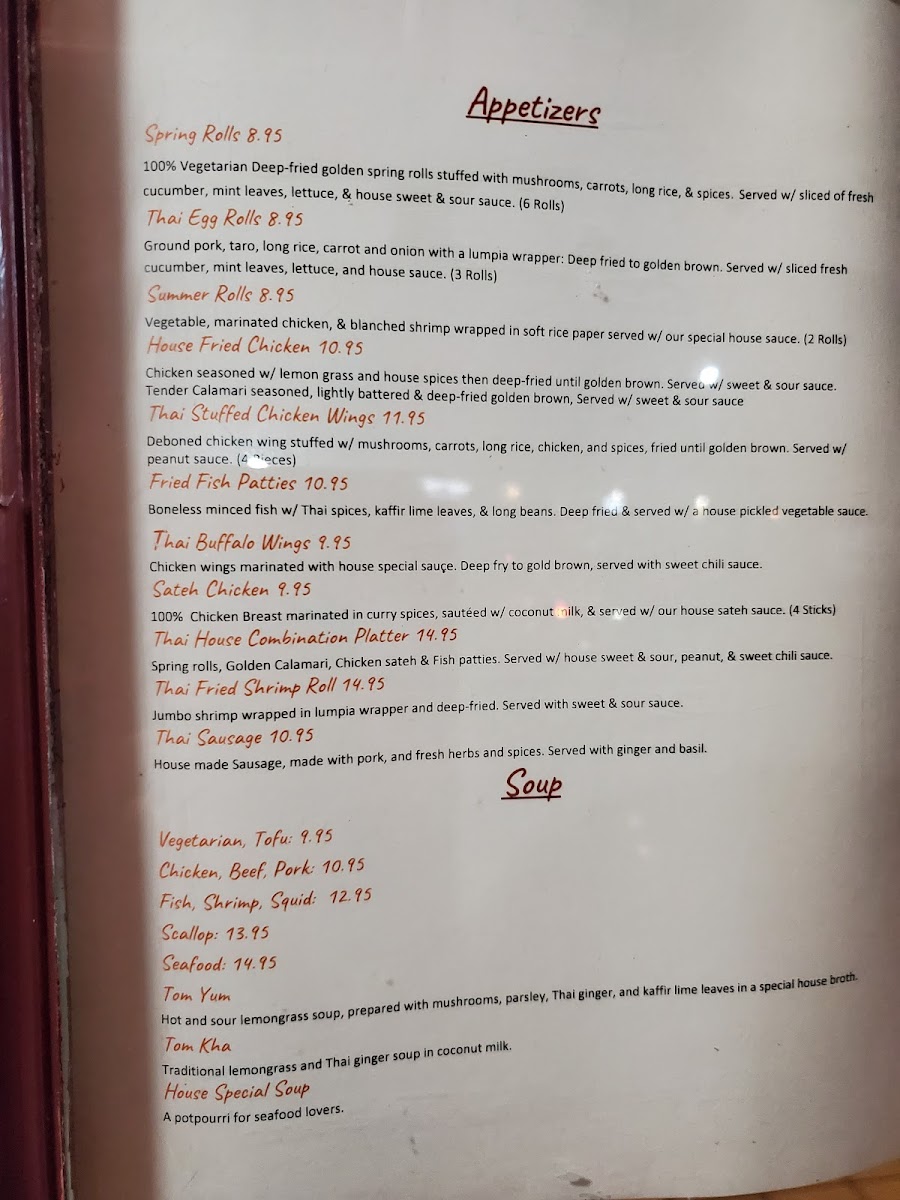 Appetizers
Spring Rolls 8.95
100% Vegetarian Deep-fried golden spring rolls stuffed with mushrooms, carrots, long rice, & spices. Served w/ sliced of fresh
cucumber, mint leaves, lettuce, & house sweet & sour sauce. (6 Rolls)
Thai Egg Rolls 8.95
Ground pork, taro, long rice, carrot and onion with a lumpia wrapper: Deep fried to golden brown. Served w/ sliced fresh
cucumber, mint leaves, lettuce, and house sauce. (3 Rolls)
Summer Rolls 8.95
Vegetable, marinated chicken, & blanched shrimp wrapped in soft rice paper served w/ our special house sauce. (2 Rolls)
House Fried Chicken 10.95
Chicken seasoned w/ lemon grass and house spices then deep-fried until golden brown. Served w/ sweet & sour sauce.
Tender Calamari seasoned, lightly battered & deep-fried golden brown, Served w/ sweet & sour sauce
Thai Stuffed Chicken Wings 11.95
Deboned chicken wing stuffed w/ mushrooms, carrots, long rice, chicken, and spices, fried until golden brown. Served w/
peanut sauce. (4 Pieces)
Fried Fish Patties 10.95
Boneless minced fish w/ Thai spices, kaffir lime leaves, & long beans. Deep fried & served w/ a house pickled vegetable sauce.
Thai Buffalo Wings 9.95
Chicken wings marinated with house special sauce. Deep fry to gold brown, served with sweet chili sauce.
Sateh Chicken 9.95
100% Chicken Breast marinated in curry spices, sautéed w/ coconut milk, & served w/ our house sateh sauce. (4 Sticks)
Thai House Combination Platter 14.95
Spring rolls, Golden Calamari, Chicken sateh & Fish patties. Served w/ house sweet & sour, peanut, & sweet chili sauce.
Thai Fried Shrimp Roll 14.95
Jumbo shrimp wrapped in lumpia wrapper and deep-fried. Served with sweet & sour sauce.
Thai Sausage 10.95
House made Sausage, made with pork, and fresh herbs and spices. Served with ginger and basil.
Soup
Vegetarian, Tofu: 9.95
Chicken, Beef, Pork: 10.95
Fish, Shrimp, Squid: 12.95
Scallop: 13.95
Seafood: 14.95
Tom Yum
Hot and sour lemongrass soup, prepared with mushrooms, parsley, Thai ginger, and kaffir lime leaves in a special house broth.
Tom Kha
Traditional lemongrass and Thai ginger soup in coconut milk.
House Special Soup
A potpourri for seafood lovers.